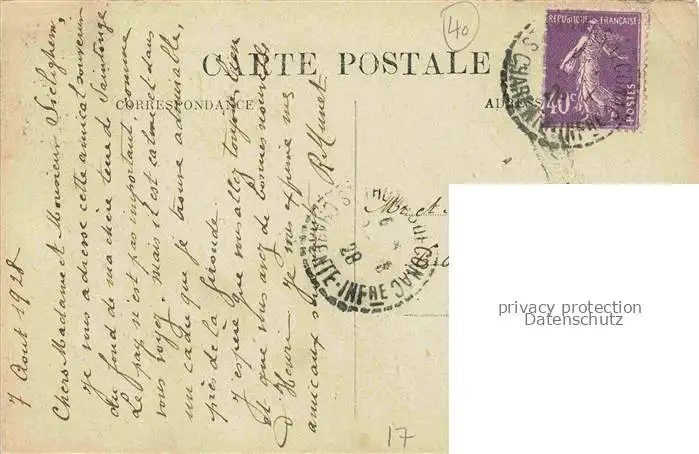 40
REPUBLIQUE FRANÇAISE
40c
POSTES
CARTE POSTALE
CORRESPONDANCE
ADRESSE
7 Aout 1928
Chers Madame et Monsieur
Je vous adresse cette amical souvenir
du fond de ma chère terre de Saintonge.
Le pays n'est pas important, comme
vous voyez, mais il est calme et dans
un cadre que je trouve admirable,
près de la Gironde.
J'espère que vous allez toujours bien
et que vous avez de bonnes nouvelles
d'Henri. Je vous exprime mes
amicaux
M. et
28
NTE-INFRE
17
privacy protection
Datenschutz